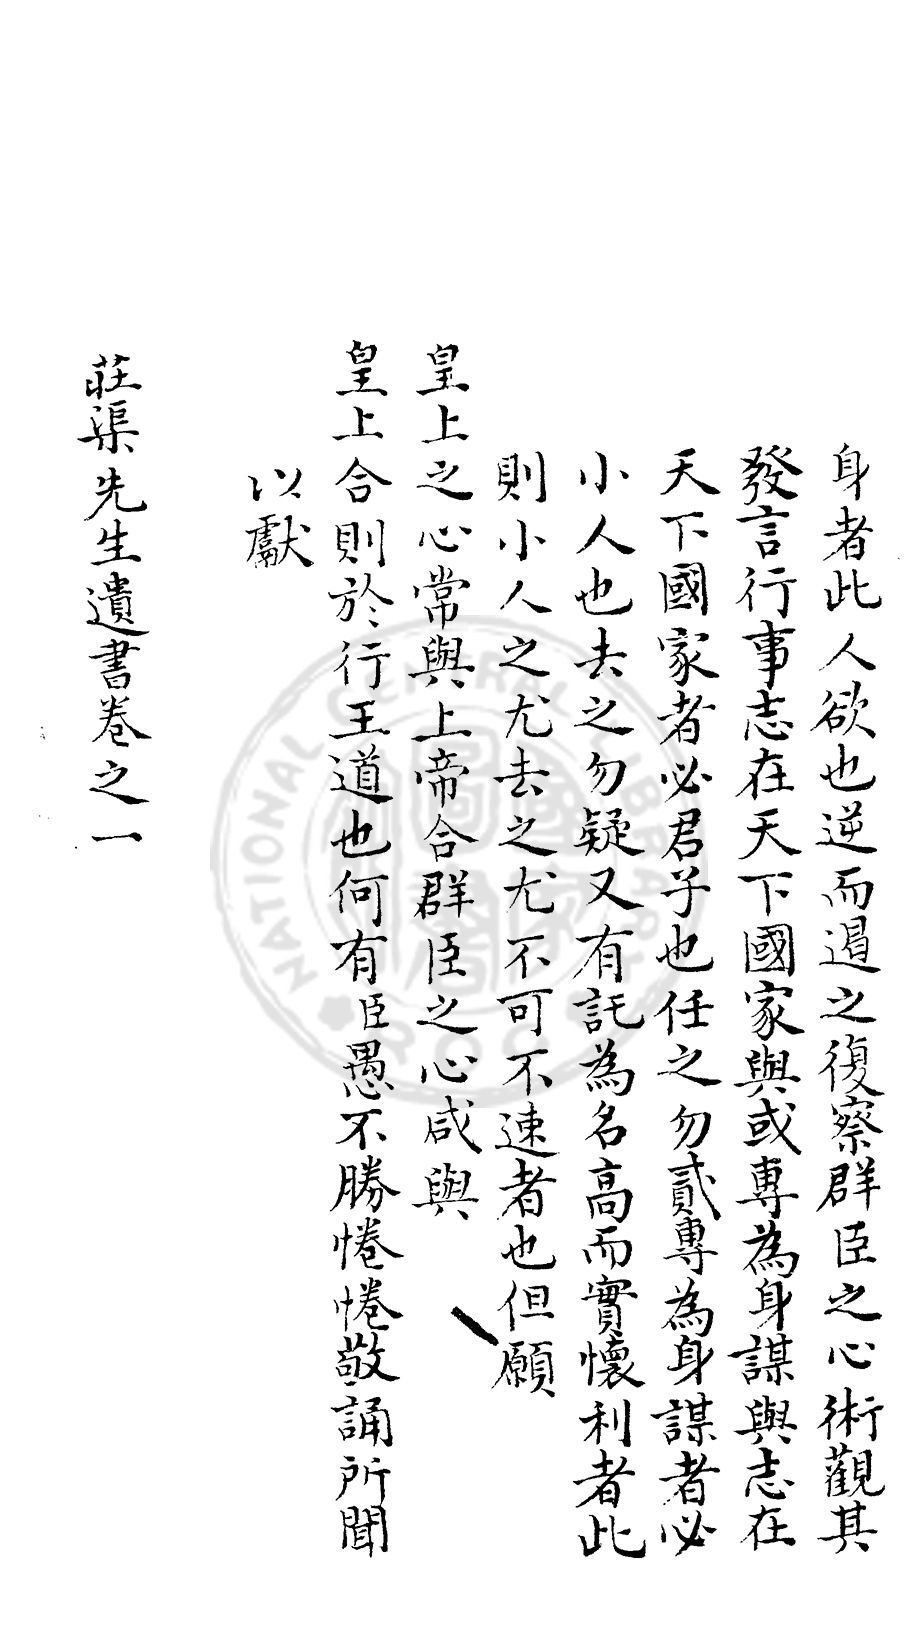 身者此人欲也逆而遏之復察群臣之心術觀其
發言行事志在天下國家與或專為身謀與志在
天下國家者必君子也任之勿貳專為身謀者必
小人也去之勿疑又有託為名高而實懷利者此
則小人之尤去之尤不可不速者也但願
皇上之心常與上帝合群臣之心咸與
皇上合則於行王道也何有臣愚不勝惓惓敬誦所聞
以獻
莊渠先生遺書卷之一
NATIONAL CENTRAL LIBRARY
ROC